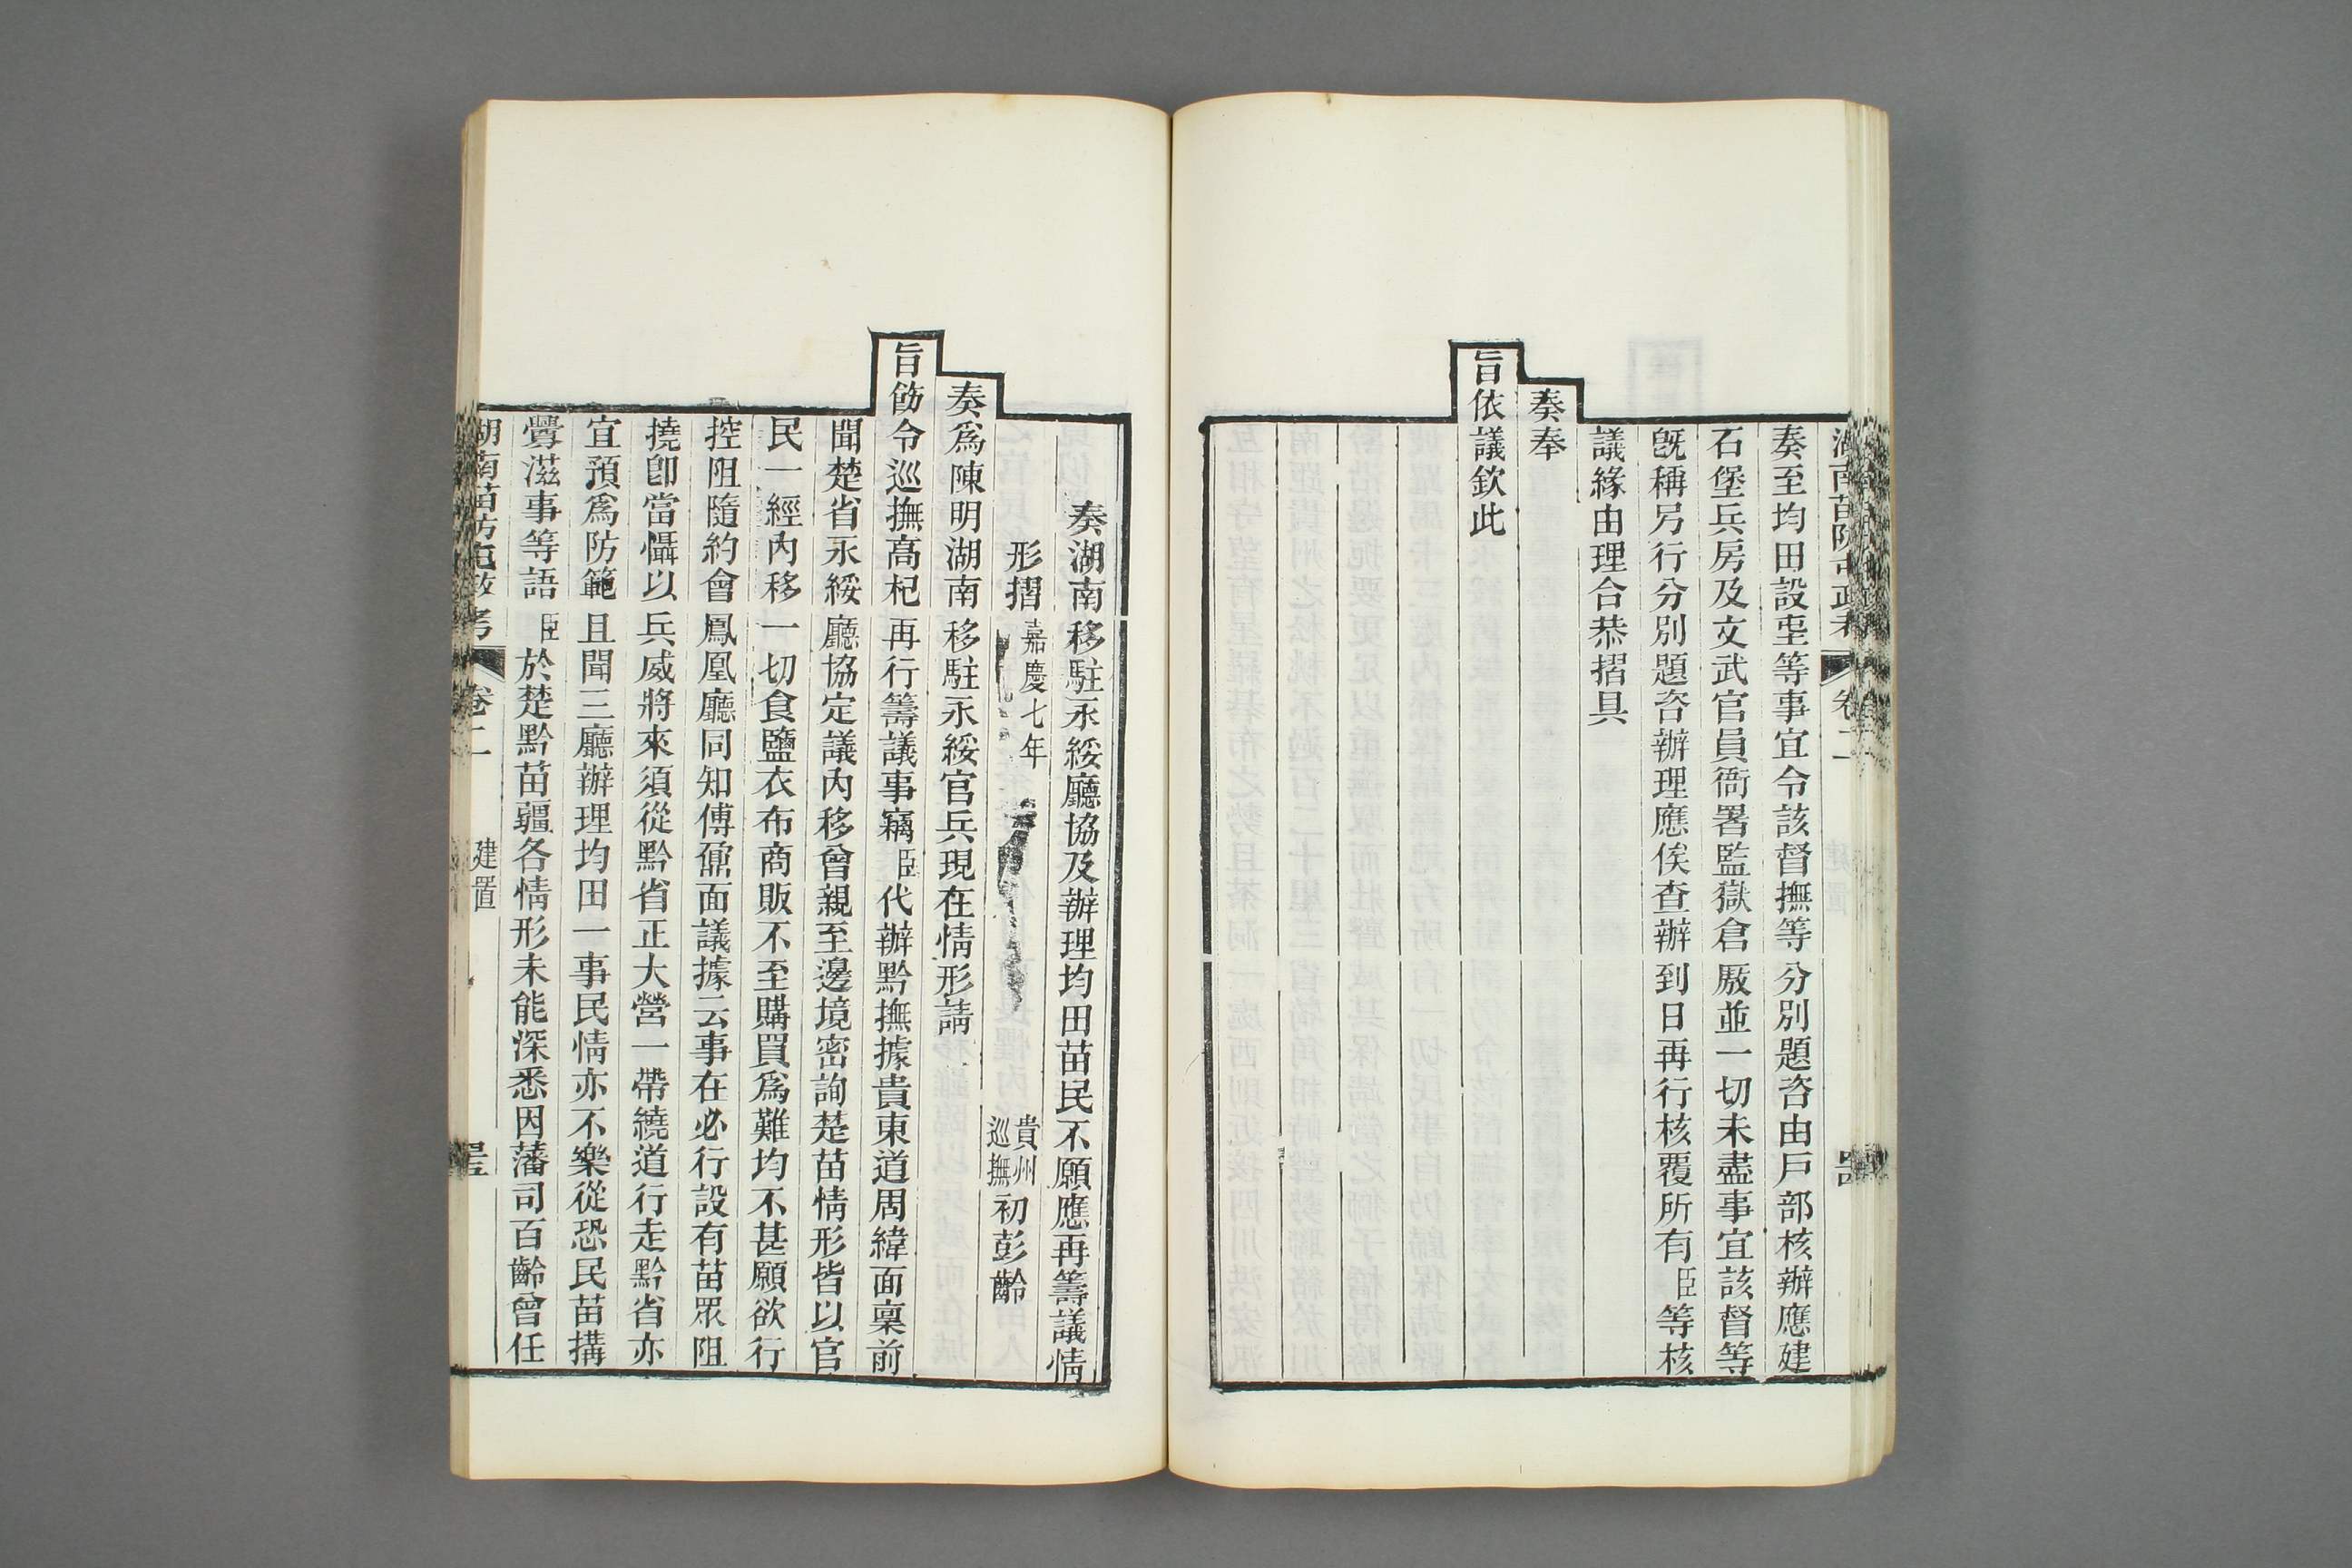 奏至均田設屯等事宜令該督撫等分別題咨由戶部核辦應建
石堡兵房及文武官員衙署監獄倉厫並一切未盡事宜該督等
旣稱另行分別題咨辦理應俟查辦到日再行核覆所有臣等核
議緣由理合恭摺具
奏奉
旨依議欽此
奏湖南移駐永綏廳協及辦理均田苗民不願應再籌議情
形摺嘉慶七年 貴州巡撫初彭齡
奏爲陳明湖南移駐永綏官兵現在情形請
旨飭令巡撫高杞再行籌議事竊臣代辦黔撫據貴東道周緯面稟前
聞楚省永綏廳協定議內移曾親至邊境密詢楚苗情形皆以官
民一經內移一切食鹽衣布商販不至購買爲難均不甚願欲行
控阻隨約會鳳凰廳同知傅鼐面議據云事在必行設有苗眾阻
撓卽當懾以兵威將來須從黔省正大營一帶繞道行走黔省亦
宜預爲防範且聞三廳辦理均田一事民情亦不樂從恐民苗搆
釁滋事等語臣於楚黔苗疆各情形未能深悉因藩司百齡曾任
湖南苗防屯政考 卷二 建置